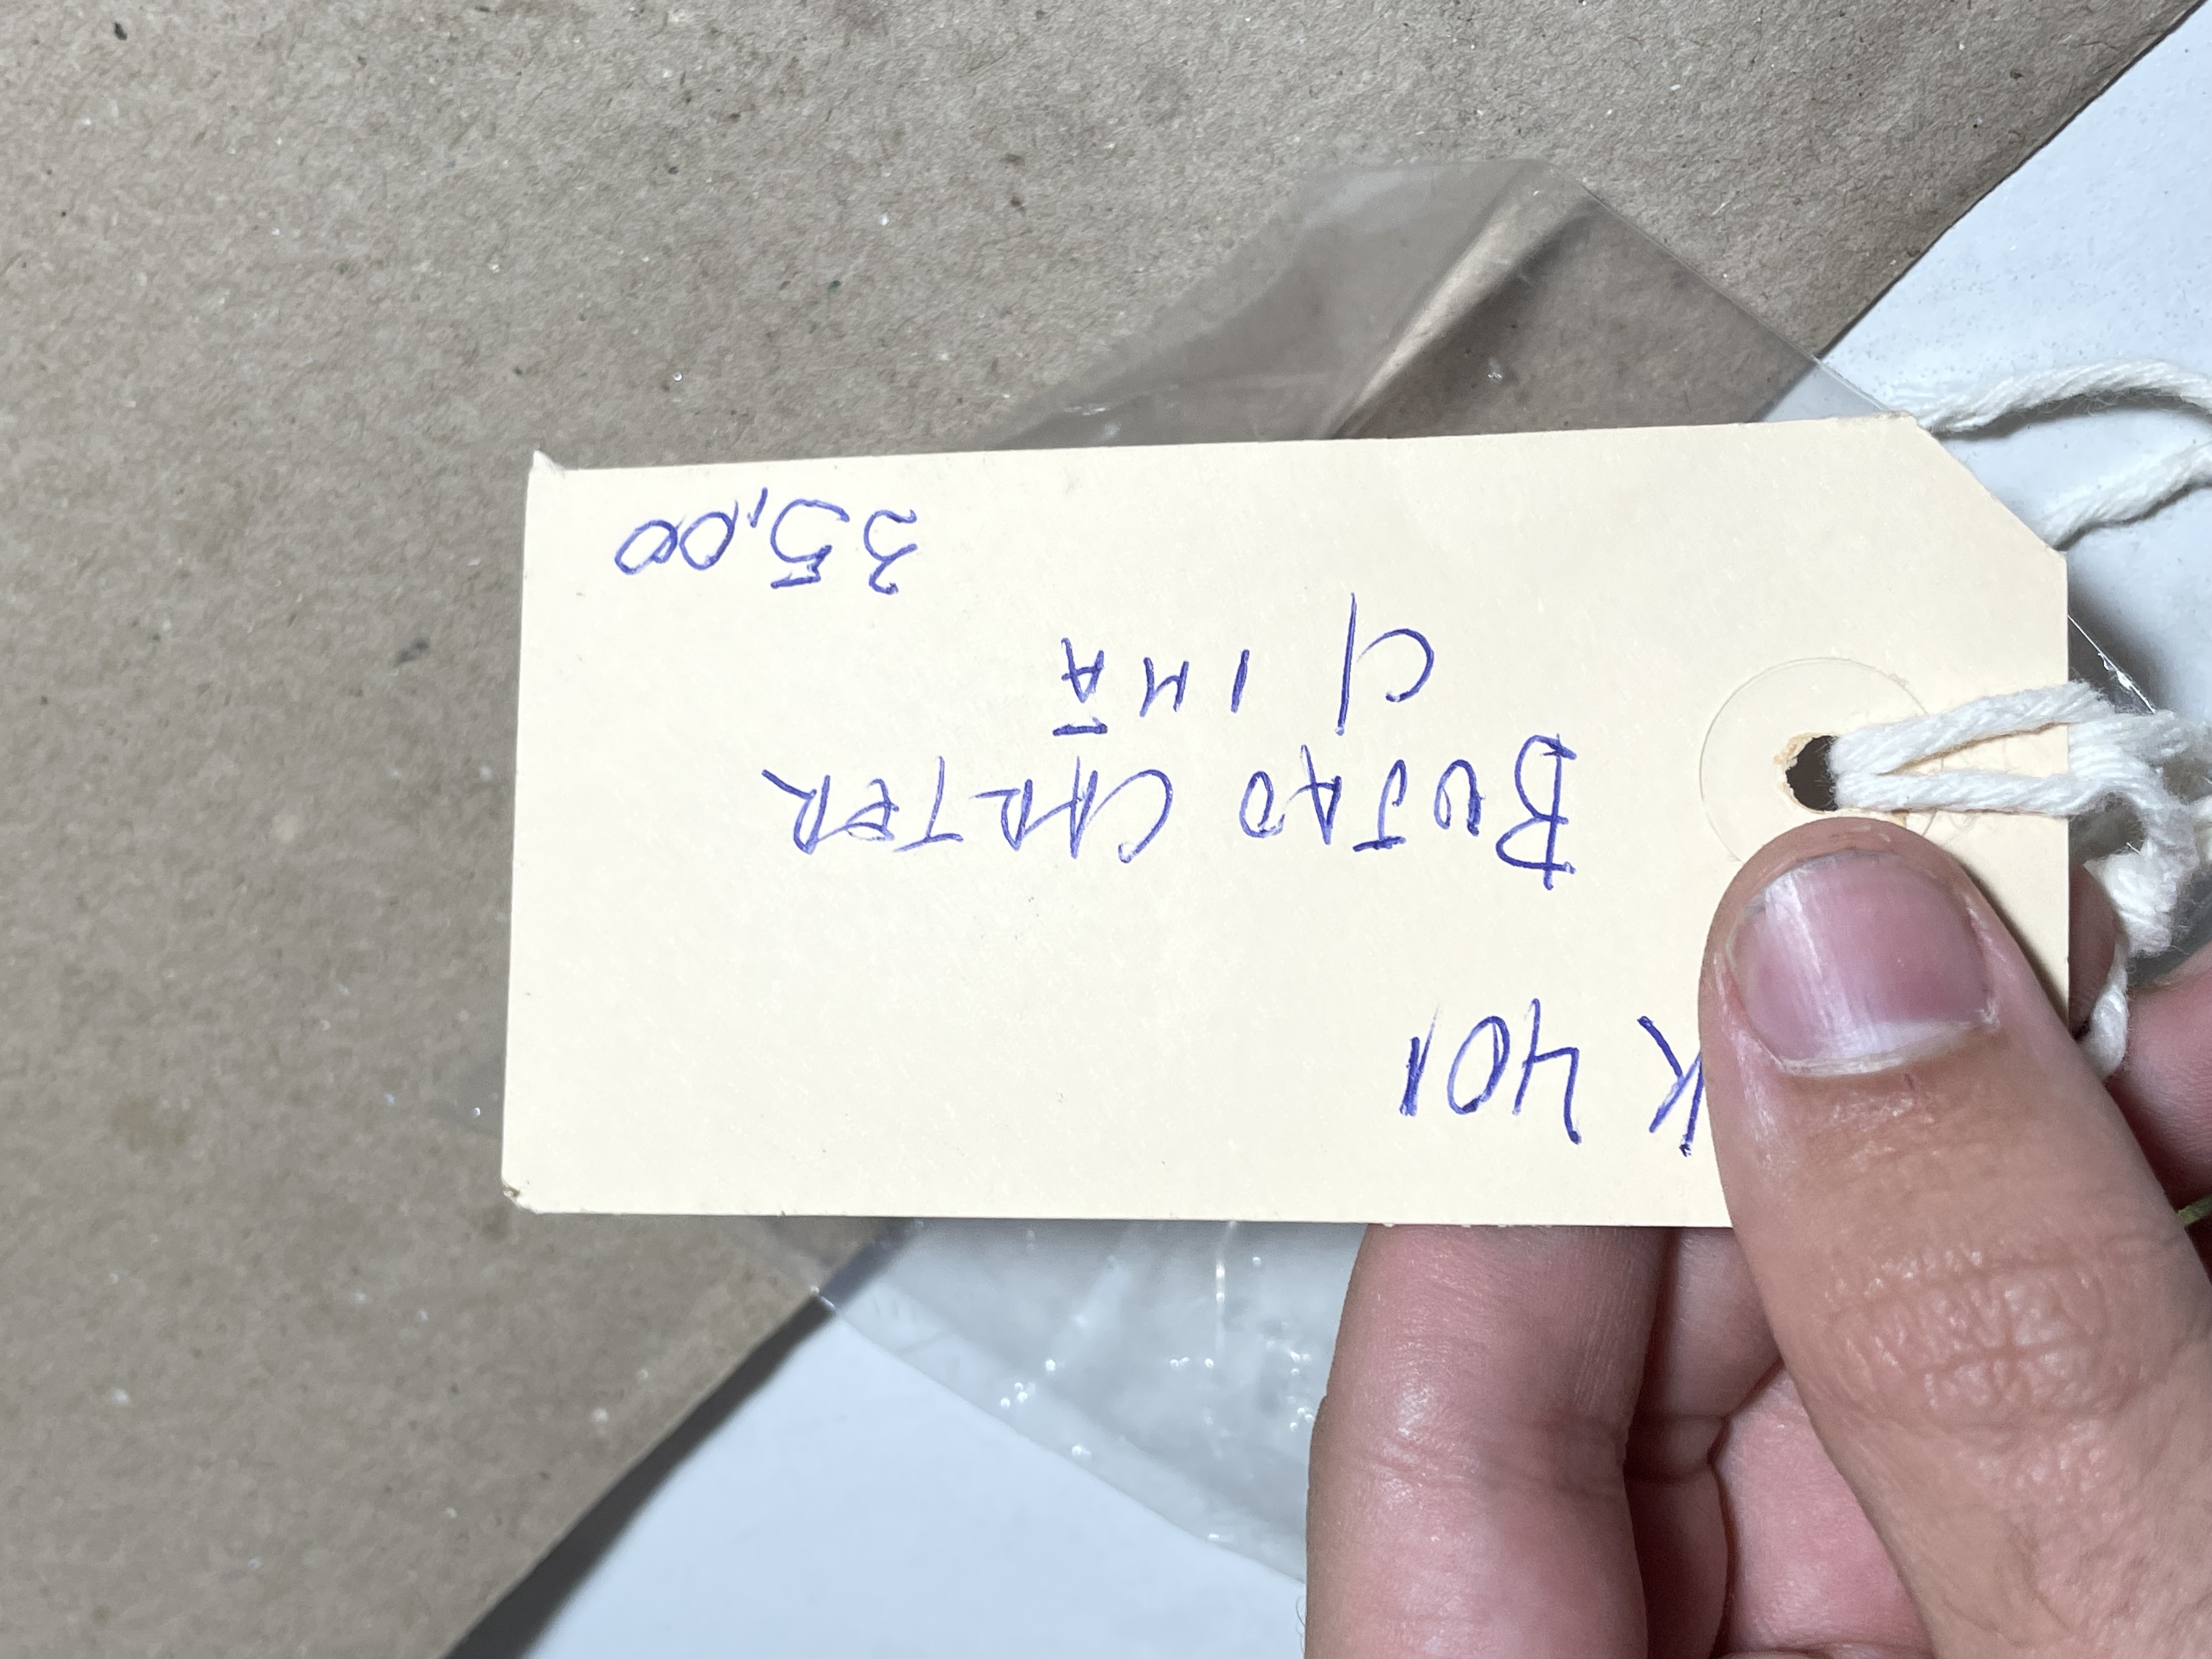 K 401
BUJAO CARTER
C/ IMÃ
35,00